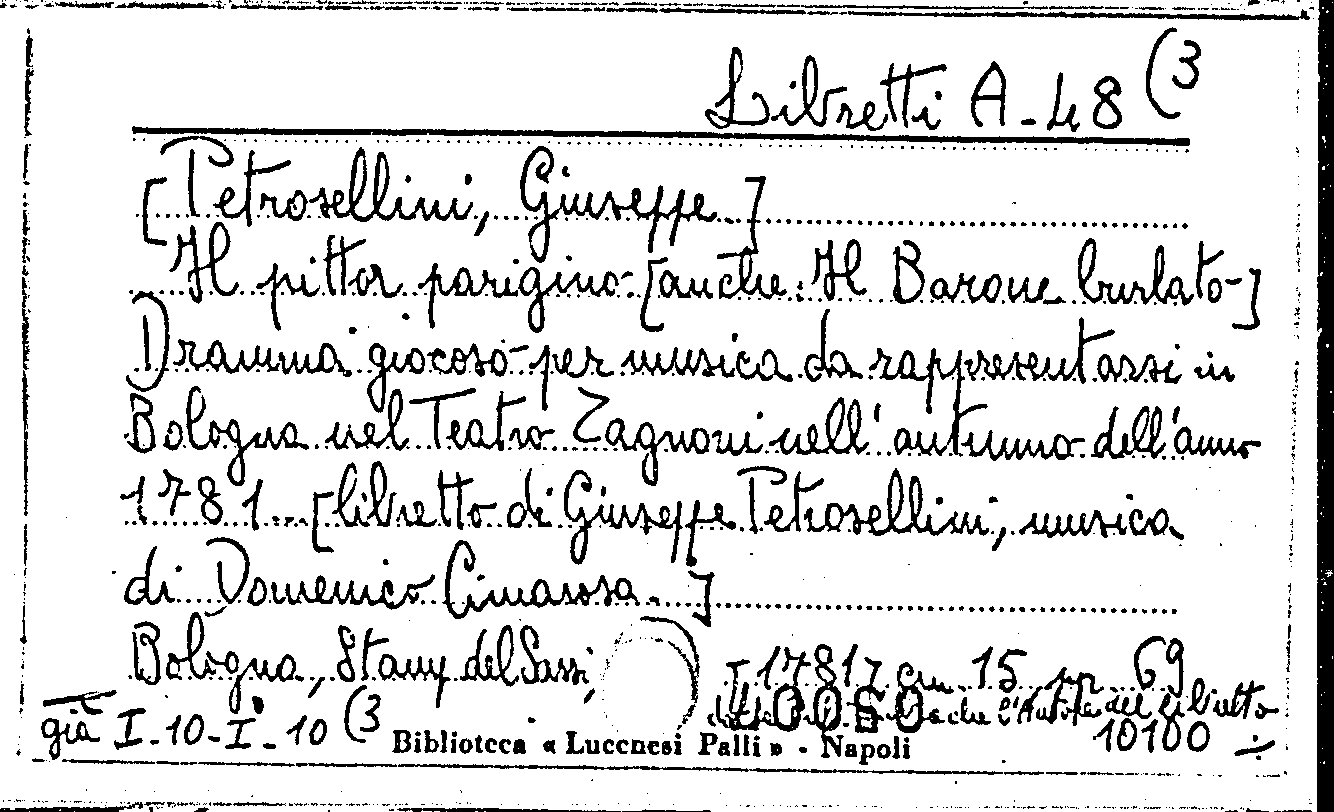 Libretti A-48 (3
[Petrosellini, Giuseppe]
Il pittor parigino. [anche: Il Barone burlato]
Dramma giocoso per musica da rappresentarsi in
Bologna nel Teatro Zagnoni nell' autunno dell'anno
1781. [libretto di Giuseppe Petrosellini, musica
di Domenico Cimarosa.]
Bologna, Stamp. del Sassi, [1781] cm. 15 pp. 69
che l'Autore del libretto
già I-10-I-10 (3
Biblioteca « Lucchesi Palli » - Napoli
10100